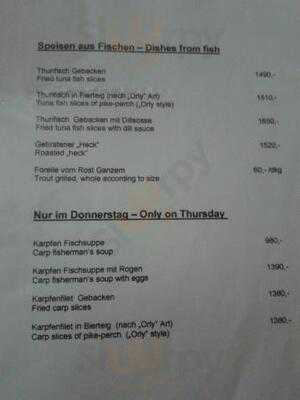 Speisen aus Fischen – Dishes from fish
Thunfisch Gebacken 1490,-
Fried tuna fish slices
Thunfisch in Bierteig (nach „Orly" Art) 1510,-
Tuna fish slices of pike-perch („Orly style)
Thunfisch Gebacken mit Dillsosse 1650,-
Fried tuna fish slices with dill sauce
Gebratener „Heck" 1520,-
Roasted „heck"
Forelle vom Rost Ganzem 60,-/dkg
Trout grilled, whole according to size
Nur im Donnerstag – Only on Thursday
Karpfen Fischsuppe 980,-
Carp fisherman's soup
Karpfen Fischsuppe mit Rogen 1390,-
Carp fisherman's soup with eggs
Karpfenfilet Gebacken 1360,-
Fried carp slices
Karpfenfilet in Bierteig (nach „Orly" Art) 1380,-
Carp slices of pike-perch („Orly" style)